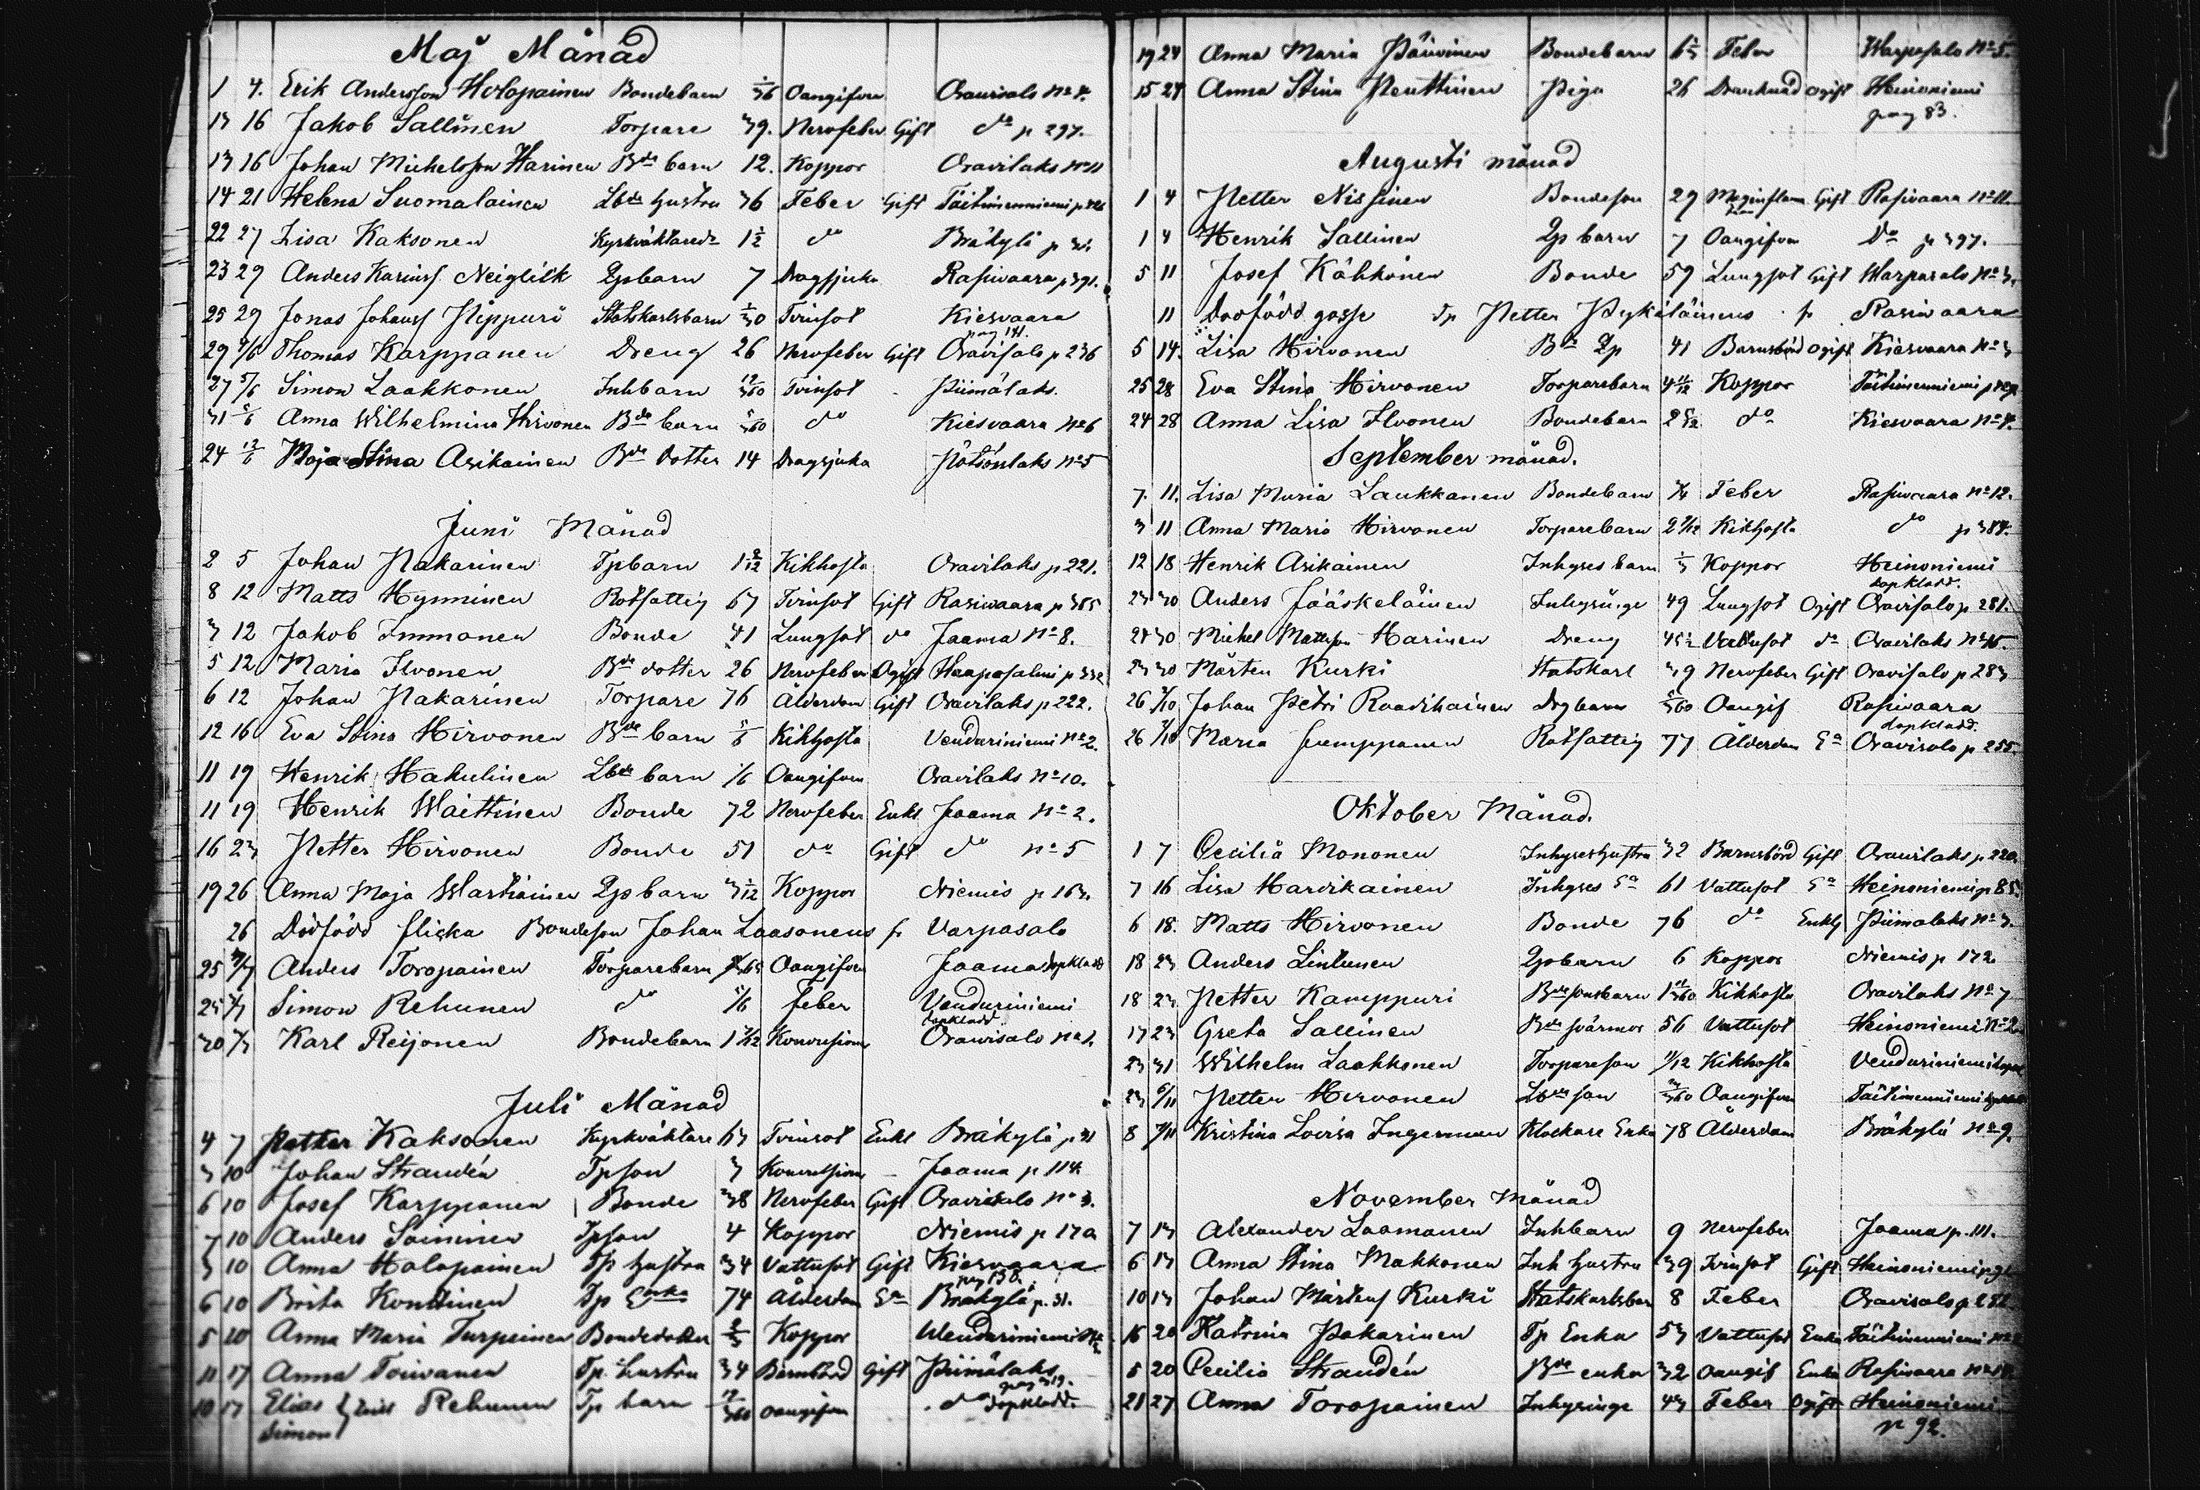 Maj Månad
1 4. Erik Andersson Holopainen Bondebarn Oangifven Oravisalo No 4.
13 16 Jakob Sallinen Torpare 39. Nervfeber Gift do p 297.
13 16 Johan Michelsson Harinen Bde barn 12. Koppor Oravilaks No 11
14 21 Helena Suomalainen Lbde hustru 36 Feber Gift Täitimenniemi
22 27 Lisa Kaksonen 1 1/2 do Bräkylä
23 29 Anders Neiglick Lpbarn 7 Dragsjuka Rasivaara p 391.
25 29 Jonas Johanss Nippuri Statskarlsbarn Tvinsot Kiesvaara
pag 141.
29 4/6 Thomas Karppanen Dreng 26 Nervfeber Gift Oravisalo p 236
27 5/6 Simon Laakkonen Inhbarn Tvinsot Piimälaks.
31 5/6 Anna Wilhelmina Hirvonen Bde barn do Kiesvaara No 6
24 12/6 Maja Stina Asikainen Bde dotter 14 Dragsjuka Pötsönlaks No 5
Juni Månad
2 5 Johan Pakarinen Tpbarn 1 2/12 Kikhosta Oravilaks p 221.
8 12 Matts Hynninen Rotfattig 67 Tvinsot Gift Rasivaara p 385
3 12 Jakob Immonen Bonde 41 Lungsot do Jaama No 8.
5 12 Maria Ilvonen Bde dotter 26 Nervfeber Ogift Haapasalmi
6 12 Johan Pakarinen Torpare 76 Ålderdom Gift Oravilaks p 222.
12 16 Eva Stina Hirvonen Bde barn 5/6 Kikhosta Venduriniemi No 2.
11 19 Henrik Hakulinen Lbde barn 1/6 Oangifven Oravilaks No 10.
11 19 Henrik Waittinen Bonde 72 Nervfeber Enkl Jaama No 2.
16 23 Petter Hirvonen Bonde 51 do Gift do No 5
19 26 Anna Maja Wartiainen Lpbarn Koppor Niemis p 163.
26 Dödfödd flicka Bondeson Johan Laasonens fr Varpasalo
25 3/7 Anders Toropainen Torparebarn Oangifven Jaama dopkladd
25 3/7 Simon Rehunen do 5/6 Feber Venduriniemi
dopkladd.
30 3/7 Karl Reijonen Bondebarn Konvulsioner Oravisalo No 1.
Juli Månad
4 7 Petter Kaksonen Kyrkväktare 63 Tvinsot Enkl Bräkylä p 31
3 10 Johan Strandén Tpson 3 Konvulsioner Jaama p 114.
6 10 Josef Karppanen Bonde 38 Nervfeber Gift Oravisalo No 3.
7 10 Anders Soininen Tpson 4 Koppor Niemis p 170
3 10 Anna Holopainen Tp hustru 34 Vattusot Gift Kiesvaara
pag 130.
6 10 Brita Konttinen Tp Enka 74 Ålderdom Ea Bräkylä p. 31.
5 10 Anna Maria Turpeinen Bondedotter Koppor Wenduriniemi
11 17 Anna Toivanen Tp. hustru 34 Barnsbörd Gift Piimälaks
10 17 Elias & Rehunen Tp barn Oangifven do dopkladd.
Simon
19 24 Anna Maria Päivinen Bondebarn 6 1/2 Feber Warpasalo No 5.
15 24 Anna Stina Penttinen Piga 26 Drunknad Ogift Heinoniemi
pag 83.
Augusti månad
1 4 Petter Nissinen Bondeson 29 Gift Rasivaara No 11.
1 4 Henrik Sallinen Lp barn 7 Oangifven Do p 397.
5 11 Josef Kähkönen Bonde 59 Lungsot Gift Warpasalo No 3.
11 Dödfödd gosse Tp Petter Pyykäläinens fr Rasivaara
5 14. Lisa Hirvonen Bde Lp 41 Barnsbörd Ogift Kiesvaara No 3
25 28 Eva Stina Hirvonen Torparebarn 4 11/12 Koppor Täitimenniemi
24 28 Anna Lisa Ilvonen Bondebarn 2 5/12 do Kiesvaara No 4.
September månad.
7. 11. Lisa Maria Laukkanen Bondebarn Feber Rasivaara No 12.
3 11 Anna Maria Hirvonen Torparebarn Kikhosta do p 384.
12 18 Henrik Asikainen Inhyses barn Koppor Heinoniemi
dopkladd.
23 30 Anders Jääskeläinen Inhysinge 49 Lungsot Ogift Oravisalo p 281.
24 30 Michel Mattsson Harinen Dreng Vattusot do Oravilaks No 15.
23 30 Mårten Kurki Statskarl 39 Nervfeber Gift Oravisalo p 283
26 2/10 Johan Petri Raadikainen Drgbarn Oangif Rasivaara
dopkladd.
26 2/10 Maria Jumppanen Rotfattig 77 Ålderdom Ea Oravisalo p 255
Oktober Månad.
1 7 Cecilia Mononen Inhyseshustru 32 Barnsbörd Gift Oravilaks p 220.
7 16 Lisa Harvikainen Inhyses Ea 61 Vattusot Ea Heinoniemi p 85.
6 18. Matts Hirvonen Bonde 76 do Enkl Piimälaks No 3.
18 23 Anders Lintunen Lpbarn 6 Koppor Niemis p 172
18 23 Petter Kamppuri Bdesonsbarn Kikhosta Oravilaks No 7
17 23 Greta Sallinen Bde svärmor 56 Vattusot Heinoniemi No 2
23 31 Wilhelm Laakkonen Torpareson 11/12 Kikhosta Venduriniemi
23 6/11 Petter Hirvonen Lbde son Oangifven Täitimenniemi
8 7/11 Kristina Lovisa Ingerman Klockare Enka 78 Ålderdom Bräkylä No 9.
November månad
7 13 Alexander Laamanen Inhbarn 9 Nervfeber Jaama p. 111.
6 13 Anna Stina Makkonen Inh hustru 39 Tvinsot Gift Heinoniemi
10 13 Johan Mårtens Kurki Statskarlsbarn 8 Feber Oravisalo p 282
16 20 Katrina Pakarinen Tp Enka 53 Vattusot Enka Täitimenniemi
5 20 Cecilia Strandén Bde enka 32 Oangif Enka Rasivaara
21 27 Anna Toropainen Inhysinge 43 Feber Ogift Heinoniemi
p 92.